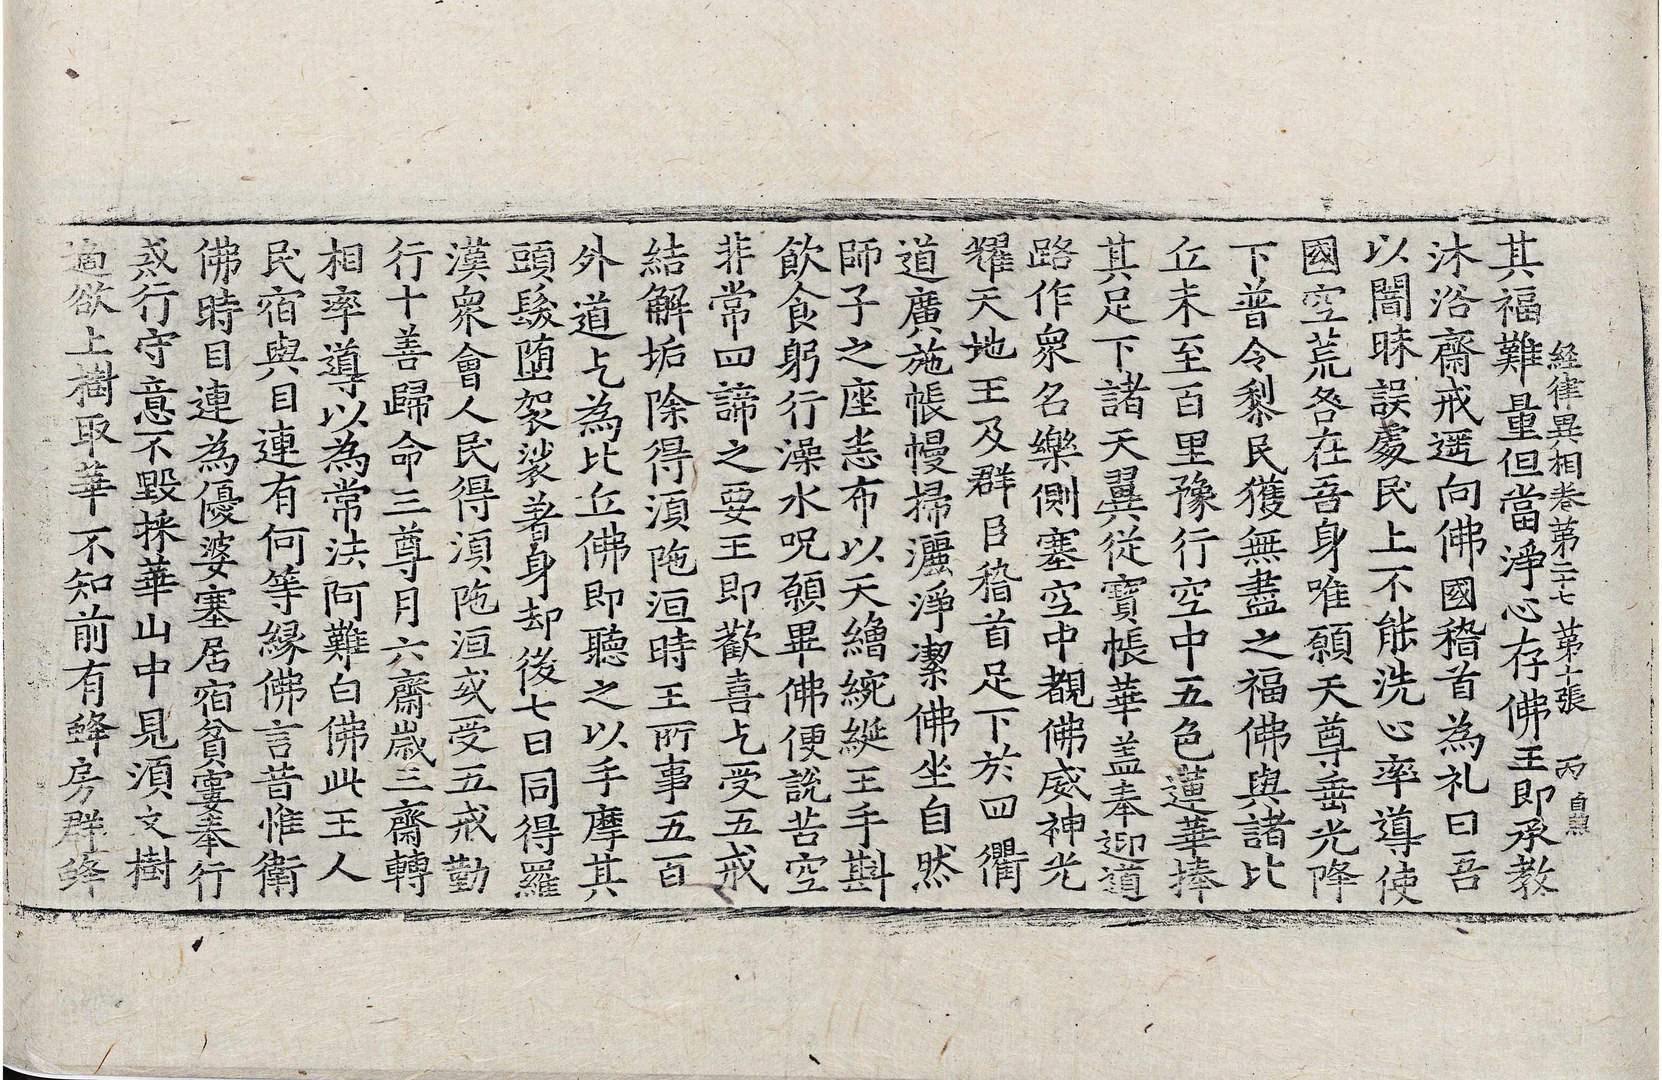 経律異相卷第二十七 第十張 丙
其福難量但當淨心存佛王即承教
沐浴齋戒遥向佛國稽首為礼曰吾
以闇昧誤處民上不能洗心率導使
國空荒咎在吾身唯願天尊垂光降
下普令黎民獲無盡之福佛與諸比
丘未至百里豫行空中五色蓮華捧
其足下諸天翼從寳帳華盖奉迎道
路作衆名樂側塞空中覩佛威神光
耀天地王及群臣稽首足下於四衢
道廣施帳幔掃灑淨潔佛坐自然
師子之座恙布以天繒綩綖王手斟
飲食躬行澡水呪願畢佛便説苦空
非常四諦之要王即歡喜乞受五戒
結解垢除得湏陁洹時王所事五百
外道乞為比丘佛即聽之以手摩其
頭髮堕袈裟著身却後七日同得羅
漢衆會人民得湏陁洹或受五戒勤
行十善歸命三尊月六齋歲三齋轉
相率導以為常法阿難白佛此王人
民宿與目連有何等縁佛言昔惟衛
佛時目連為優婆塞居宿貧窶奉行
戒行守意不毀採華山中見湏文樹
適欲上樹取華不知前有蜂房群蜂